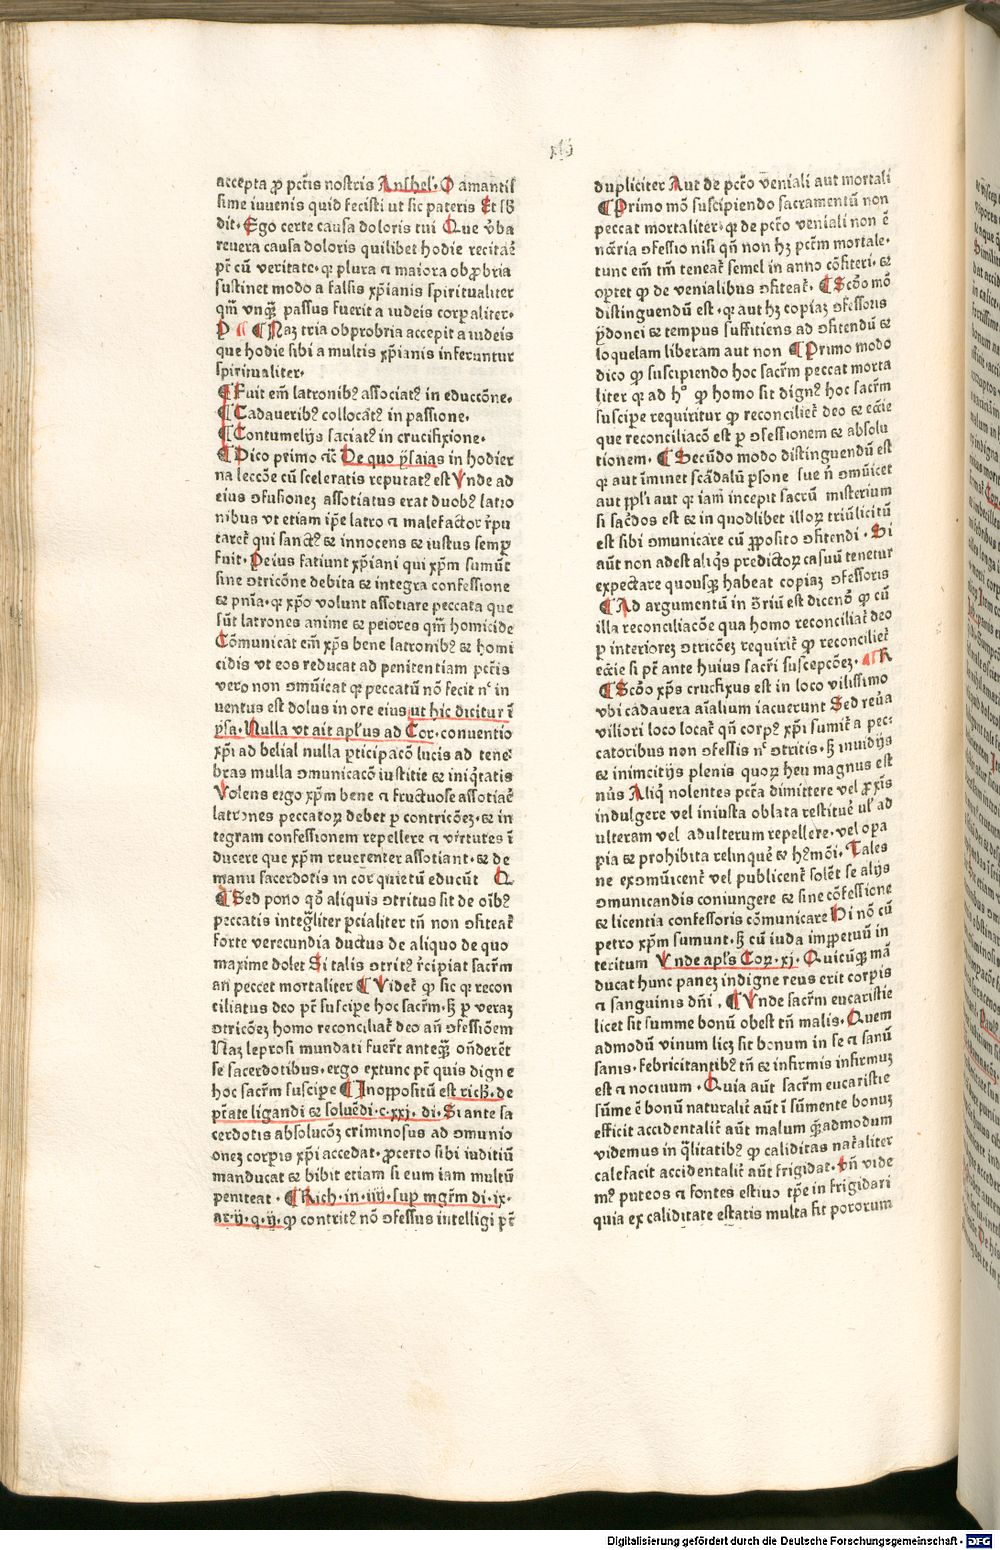 accepta ꝓ pct̄is nostris Anshel'. O amantiſ
sime iuuenis quid fecisti ut sic pateris Et sb̄
dit. Ego certe causa doloris tui Que v̄ba
reuera causa doloris quilibet hodie recitaꝫ
pt̄ cū veritate. qꝛ plura ⁊ maiora obꝓbria
sustinet modo a falsis xp̄ianis spiritualiter
qm̄ vnqꝫ passus fuerit a iudeis corꝑaliter.
P ¶ Naꝫ tria obprobria accepit a iudeis
que hodie sibi a multis xp̄ianis inferuntur
spiritualiter.
¶ Fuit em̄ latronibꝰ associatꝰ in educcōne.
¶ Cadaueribꝰ collocatꝰ in passione.
¶ Contumelijs saciatꝰ in crucifixione.
¶ Dico primo ⁊c̄ De quo ysaias in hodier
na leccōe cū sceleratis reputatꝰ est Vnde ad
eius ꝯfusioneꝫ assotiatus erat duobꝰ latro
nibus vt etiam ip̄e latro ⁊ malefactor r̄pu
taret᷑ qui sanctꝰ ⁊ innocens ⁊ iustus semꝑ
fuit. Peius fatiunt xp̄iani qui xp̄m sumūt
sine ꝯtricōne debita ⁊ integra confessione
⁊ pn̄ia. qꝛ xp̄o volunt assotiare peccata que
sūt latrones anime ⁊ peiores qm̄ homicide
Cōmunicat em̄ xp̄s bene latronibꝰ ⁊ homi
cidis vt eos reducat ad penitentiam pct̄is
vero non ꝯmūicat qꝛ peccatū nō fecit nᶜ in
uentus est dolus in ore eius ut hic dicitur ī
ysa. Nulla vt ait apl'us ad Cor. conuentio
xp̄i ad belial nulla ꝑticipacō lucis ad tene
bras mulla ꝯmunicacō iustitie ⁊ iniqͥtatis
Volens ergo xp̄m bene ⁊ fructuose assotiaē
latrones peccatoꝝ debet ꝑ contricōeꝫ. ⁊ in
tegram confessionem repellere ⁊ virtutes ī
ducere que xp̄m reuerenter assotiant. ⁊ de
manu sacerdotis in cor quietū educūt Q
¶ Sed pono qͦ aliquis ꝯtritus sit de oībꝰ
peccatis integͣliter ꝑcialiter tn̄ non ꝯfiteat᷑
forte verecundia ductus de aliquo de quo
maxime dolet Si talis ꝯtritꝰ r̄cipiat sacr̄m
an̄ peccet mortaliter ¶ Videt᷑ ꝙ sic qꝛ recon
ciliatus deo pt̄ suscipe hoc sacr̄m. sꝫ ꝑ veraꝫ
ꝯtricōeꝫ homo reconciliat᷑ deo an̄ ꝯfessiōem
Naꝫ leprosi mundati fuer̄t anteqꝫ on̄derēt
se sacerdotibus. ergo extunc pt̄ quis digne
hoc sacr̄m suscipe ¶ Inoꝑpositū est richꝫ. de
pt̄ate ligandi ⁊ soluēdi. c. xxj. di. Si ante sa
cerdotis absolucōꝫ criminosus ad ꝯmunio
oneꝫ corꝑis xp̄i accedat. ꝓcerto sibi iuditiū
manducat ⁊ bibit etiam si eum iam multū
peniteat. ¶ Rich. in. iiij. suꝑ mgr̄m di. ix.
ar. ij. q. ij. ꝙ contritꝰ nō ꝯfessus intelligi pt̄
dupliciter Aut de pcc̄o veniali aut mortali
¶ Primo mō suscipiendo sacramentū non
peccat mortaliter. qꝛ de pcc̄o veniali non ē
nc̄cria ꝯfessio nisi qn̄ non hꝫ pcc̄m mortale.
tunc em̄ tm̄ teneat᷑ semel in anno cōfiteri. ⁊
oꝑtet ꝙ de venialibus ꝯfiteat᷑. ¶ Scd̄o mō
distinguendū est. qꝛ aut hꝫ copiaꝫ ꝯfessoris
ydonei ⁊ tempus suffitiens ad ꝯfitendū ⁊
loquelam liberam aut non ¶ Primo modo
dico ꝙ suscipiendo hoc sacr̄m peccat morta
liter qꝛ ad hͦ ꝙ homo sit dignꝰ hoc sacr̄m
suscipe requiritur ꝙ reconciliet᷑ deo ⁊ eccīe
que reconciliacō est ꝑ ꝯfessionem ⁊ absolu
tionem. ¶ Secūdo modo distinguendū est
qꝛ aut īminet scādalū ꝑsone sue n̄ ꝯmūicet
aut ꝓpl'i aut qꝛ iam incepit sacrū misterium
si sac̄dos est ⁊ in quodlibet illoꝝ triū licitū
est sibi ꝯmunicare cū ꝓposito ꝯfitendi. Si
aūt non adest aliqͥs predictoꝝ casuū tenetur
expectare quousqꝫ habeat copiaꝫ ꝯfessoris
¶ Ad argumentū in ꝯr̄iū est dicenō ꝙ cū
illa reconciliacōe qua homo reconciliat᷑ deo
ꝑ interioreꝫ ꝯtricōeꝫ requirit᷑ ꝙ reconciliet᷑
eccīe si pt̄ ante huius sacr̄i suscepcōeꝫ. ¶ R
¶ Scd̄o xp̄s crucifixus est in loco vilissimo
vbi cadauera aīalium iacuerunt Sed reūa
viliori loco locat᷑ qn̄ corpꝰ xp̄i sumit᷑ a pec
catoribus non ꝯfessis nᶜ ꝯtritis. sꝫ inuidijs
⁊ inimcitijs plenis quoꝝ heu magnus est
nūs Aliqͥ nolentes pcc̄a dimittere vel ꝓxīs
indulgere vel iniusta oblata restituē ul' ad
ulteram vel adulterum repellere. vel opa
pia ⁊ prohibita relinquē ⁊ hꝰmōi. Tales
ne excōmūicent᷑ vel publicent᷑ solēt se alijs
ꝯmunicandis coniungere ⁊ sine cōfessione
⁊ licentia confessoris cōmunicare Hi nō cū
petro xp̄m sumunt. sꝫ cū iuda imꝑpetuū in
teritum Vnde apl's Coꝝ. xj. Quicūqꝫ mā
ducat hunc paneꝫ indigne reus erit corꝑis
⁊ sanguinis dn̄i. ¶ Vnde sacr̄m eucaristie
licet sit summe bonū obest tn̄ malis. Quem
admodū vinum licꝫ sit bonum in se ⁊ sanū
sanis. febricitantibꝰ tn̄ ⁊ infirmis infirmuꝫ
est ⁊ nociuum. Quia aūt sacr̄m eucaristie
sūme ē bonū naturalit᷑ aūt ī sūmente bonuꝫ
efficit accidentalit᷑ aūt malum qꝫadmodum
videmus in qͣlitatibꝰ ꝙ caliditas nat᷑aliter
calefacit accidentalit᷑ aūt frigidat. tn̄ vide
mꝰ puteos ⁊ fontes estiuo tꝑe in frigidari
quia ex caliditate estatis multa fit pororum
Digitalisierung gefördert durch die Deutsche Forschungsgemeinschaft - DFG